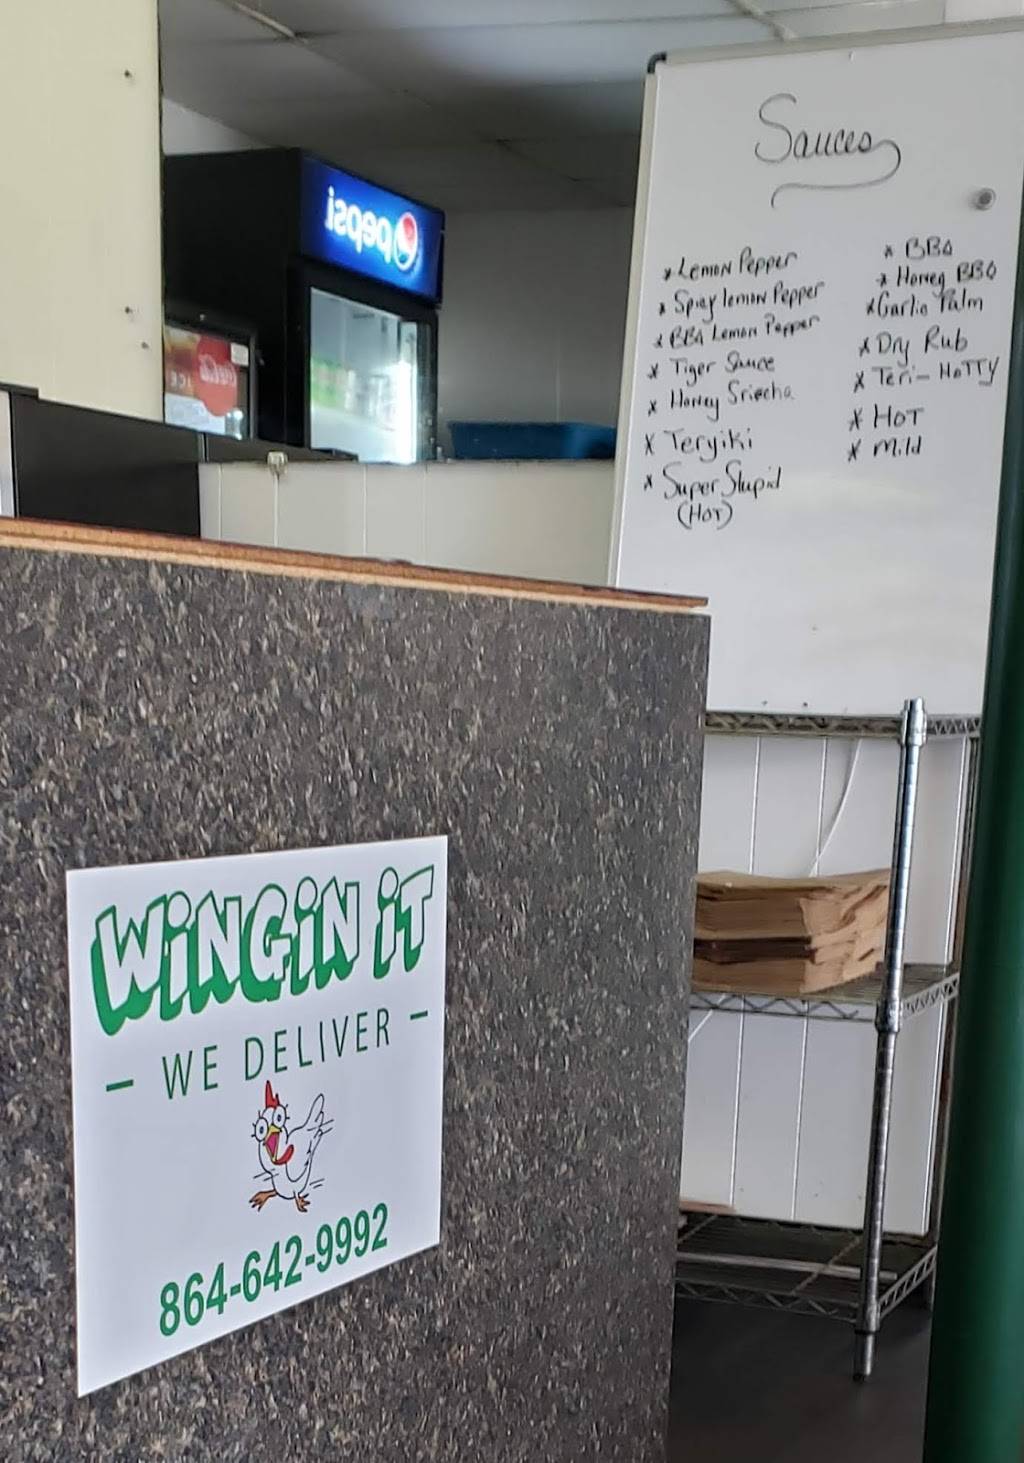 pepsi
Sauces
* Lemon Pepper
* Spicy lemon Pepper
* BBQ Lemon Pepper
* Tiger Sauce
* Honey Sriacha
* Teryiki
* Super Stupid
(HOT)
* BBQ
* Honey BBQ
* Garlic Palm
* Dry Rub
* Teri-HoTTY
* HOT
* Mild
WiNGiN iT
- WE DELIVER -
864-642-9992